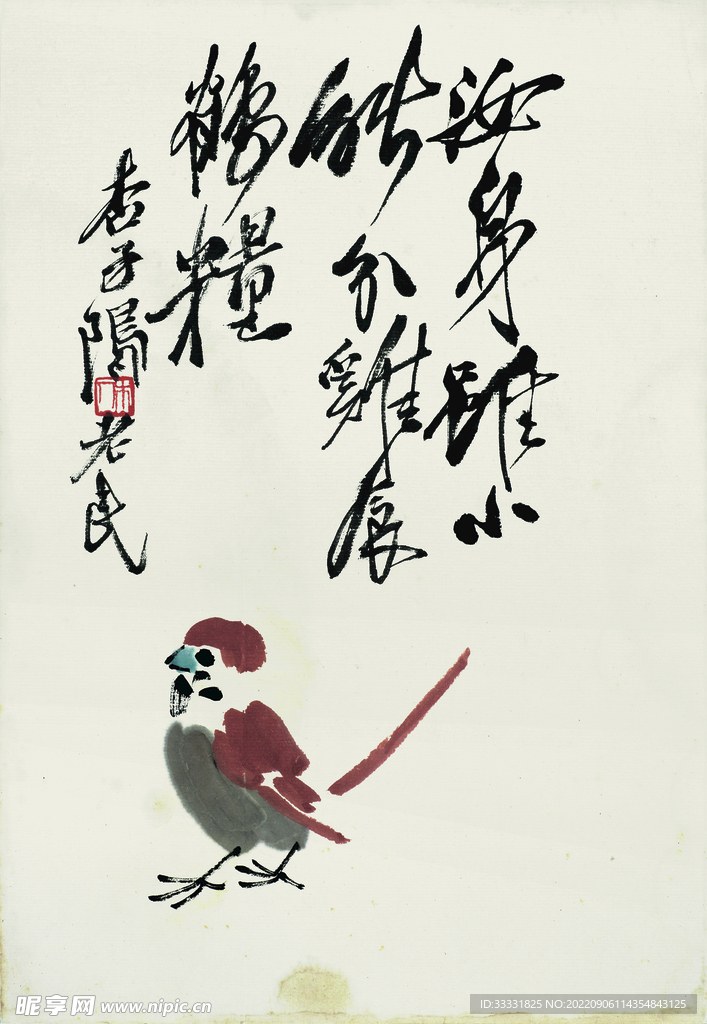 汝身雖小
能分雞食
鶴糧
杏子隖老民
木人
昵享网 www.nipic.cn
ID:33331825 NO:20220906114354843125